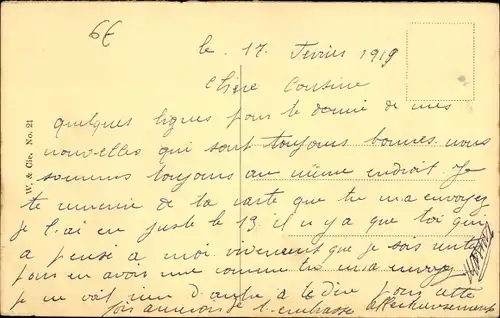 6E
le 17 Fevrier 1919
Chère Cousine
quelques lignes pour te donné de mes
nouvelles qui sont toujours bonnes nous
sommes toujours au même endroit Je
te remercie de ta carte que tu m'a envoyez
je l'ai en juste le 13 il n y a que toi qui
a pensé a moi vivement que je sois
pour en avoir une comme tu m'a envoyez
je ne voit rien d'autre a te dire pour cette
fois je t'embrasse affectueusement
W. & Cie. No. 21